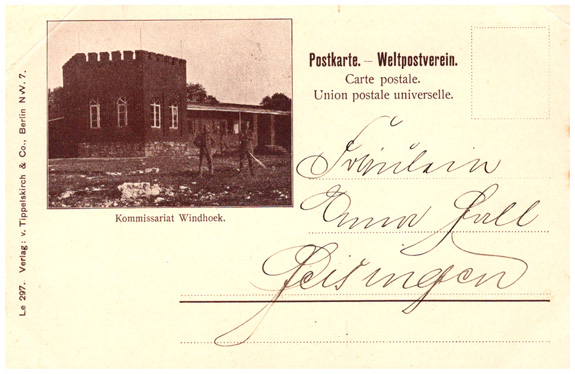 Postkarte. – Weltpostverein.
Carte postale.
Union postale universelle.
Fräulein
Anna Gall
Geisingen
Kommissariat Windhoek.
Le 297. Verlag: v. Tippelskirch & Co., Berlin N.W. 7.